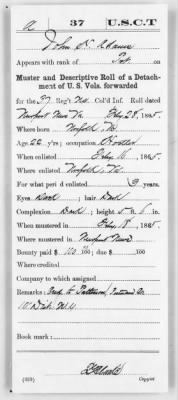 a 37 U.S.C.T
John
Appears with rank of Pvt.
Muster and Descriptive Roll of a Detach-
ment of U. S. Vols. forwarded
for the 37 Reg't Col'd Inf. Roll dated
Newport News Va. Feby 28, 1865.
Where born Norfolk, Va.
Age 22 y'rs; occupation
When enlisted Feby 16, 1865.
Where enlisted Norfolk, Va.
For what period enlisted 3 years.
Eyes Dark; hair Dark
Complexion Dark; height 5 ft. 6 in.
When mustered in Feby 18, 1865
Where mustered in Newport News
Bounty paid $ 100; due $ 100
Where credited
Company to which assigned
Remarks: to Patterson,
10 Dist. N.Y.
Book mark:
(339) Copyist